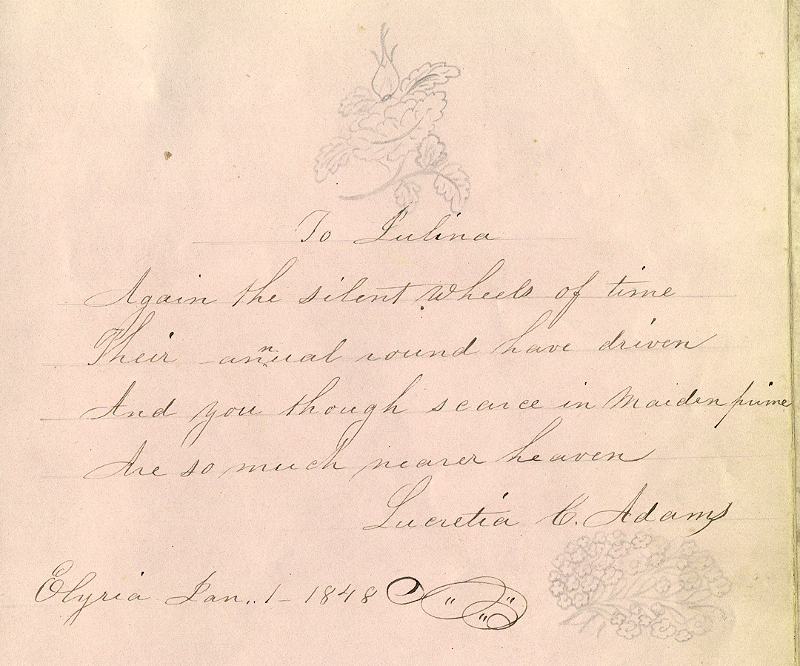 To Julina
Again the silent wheels of time
Their annual round have driven
And you though scarce in Maiden prime
Are so much nearer heaven
Lucretia C. Adams
Elyria Jan.. 1 - 1848